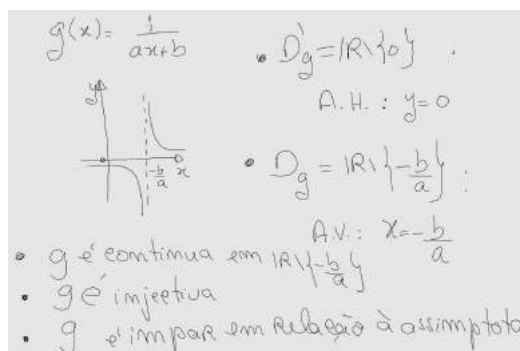 g(x) = 1/(ax+b)
• D'g = IR\{0} .
A.H. : y=0
y
-b/a x
• Dg = IR\{-b/a} :
A.V.: x=-b/a
• g é continua em IR\{-b/a}
• g é injectiva
• g é impar em relação à assimptota